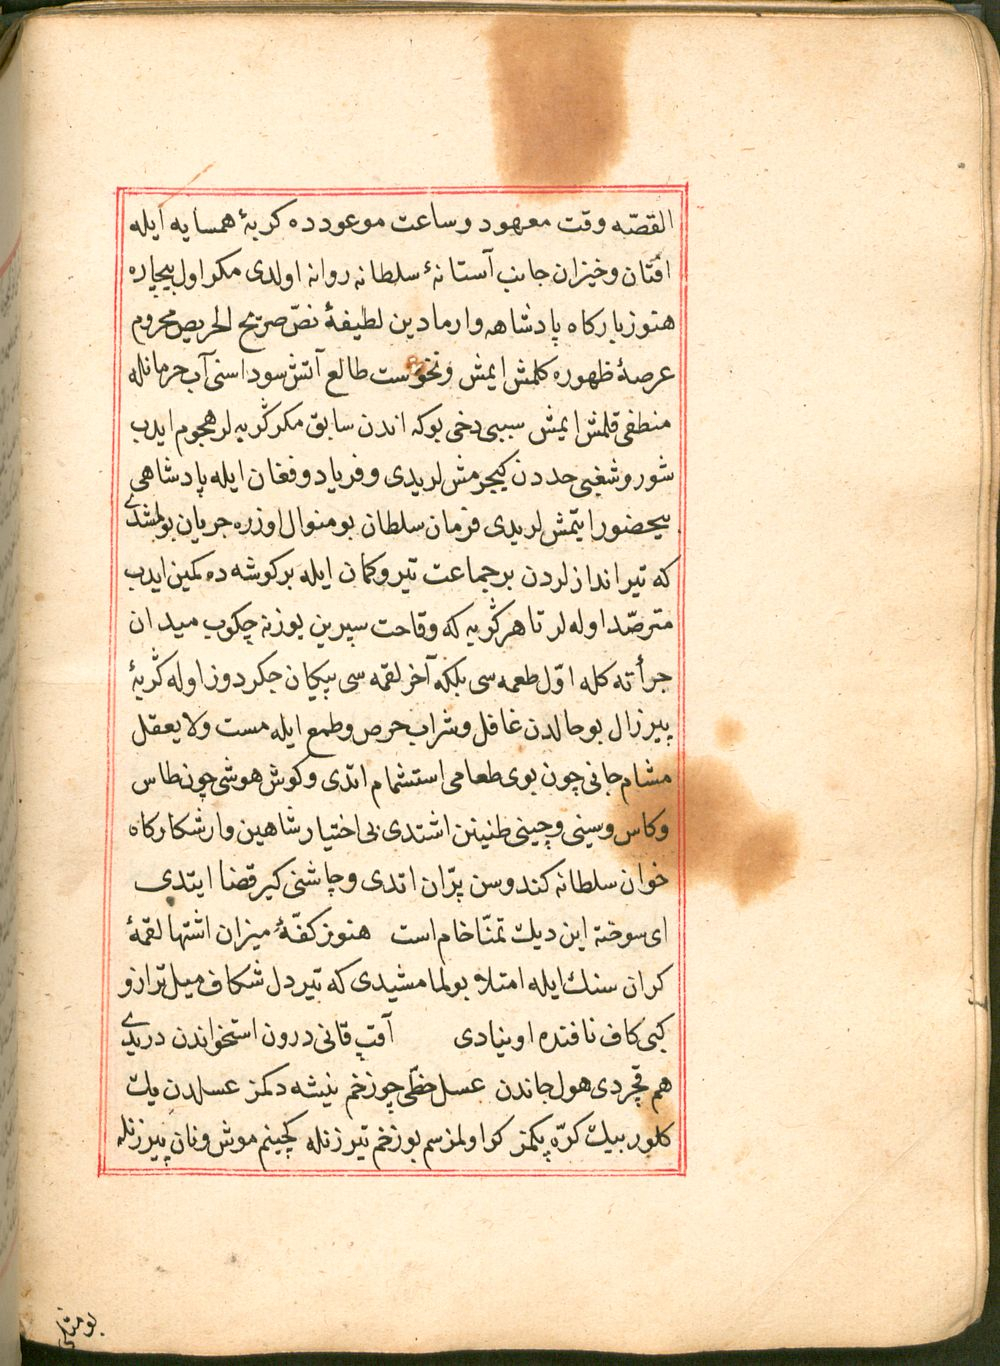 القصّه وقت معهود وساعت موعودده كربهٔ همسايه ايله
افتان وخيزان جانب آستانهٔ سلطانه روانه اولدى مكر اول بيچاره
هنوز باركاه پادشاهه وارمادين لطيفهٔ نصّ صريح الحريص محروم
عرصهٔ ظهوره كلمش ايمش ونحوست طالع آتش سوداسنى آب حرمانله
منطفى قلمش ايمش سببى دخى بوكه اندن سابق مكر كربه لر هجوم ايدب
شور وشغبى حددن كچرمشلريدى وفرياد وفغان ايله پادشاهى
بيحضور ايتمشلريدى فرمان سلطان بو منوال اوزره جريان بولمشدى
كه تيراندازلردن بر جماعت تير وكمان ايله بر كوشه ده كمين ايدب
مترصّد اوله لر تا هر كربه كه وقاحت سپرين يوزنه چكوب ميدان
جرأته كله اوّل طعمه سى بلكه آخر لقمه سى پيكان جكردوز اوله كربهٔ
پيرزال بو حالدن غافل وشراب حرص وطمع ايله مست ولايعقل
مشام جانى چون بوى طعامى استشمام اتدى وكوش هوشى چون طاس
وكاس وسينى وچينى طنينن اشتدى بى اختيار شاهين وار شكاركاه
خوان سلطانه كندوسن پرّان اتدى وچاشنى كير قضا ايتدى
اى سوخته اين ديك تمنّا خام است هنوز كفّهٔ ميزان اشتها لقمهٔ
كران سنك ايله امتلا بولمامشيدى كه تير دل شكاف ميل ترازو
كبى كاف نافنده اوينادى آقب قانى درون استخواندن دريدى
هم قچردى هول جاندن عسل حظّى چو زخم نيشه دكمز عسلدن يك
كلور بيك كرّه پكمز كر اولمزسم بو زخم تير زنله كچينم موش ونان پيرزنله
بو مثلى